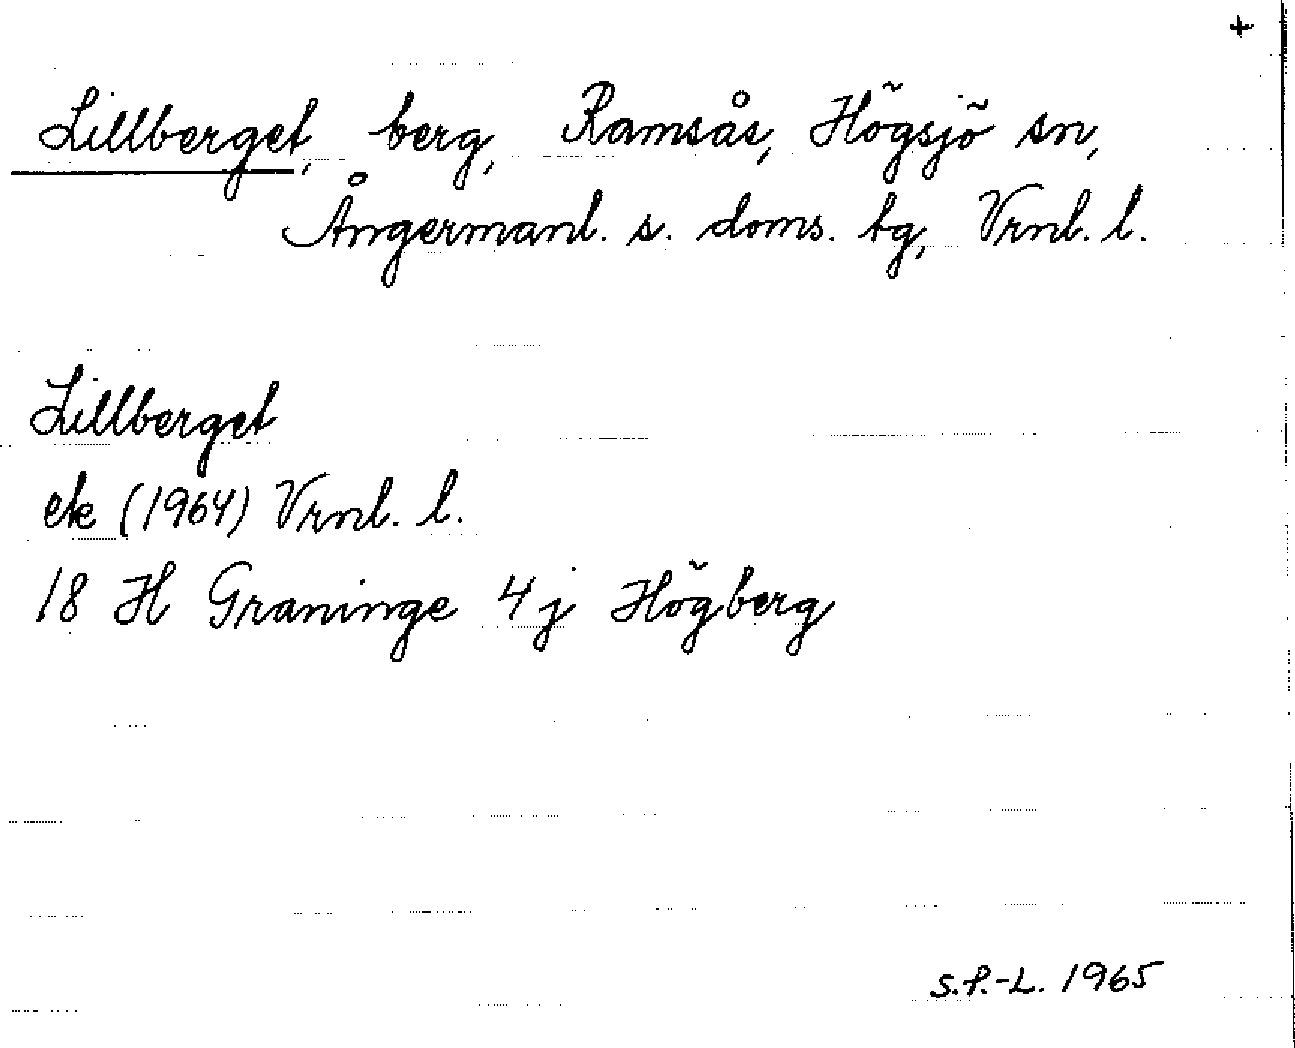 +
Lillberget, berg, Ramsås, Högsjö sn,
Ångermanl. s. doms. tg, Vrnl. l.
Lillberget
ek (1964) Vrnl. l.
18 H Graninge 4j Högberg
S.P.-L. 1965